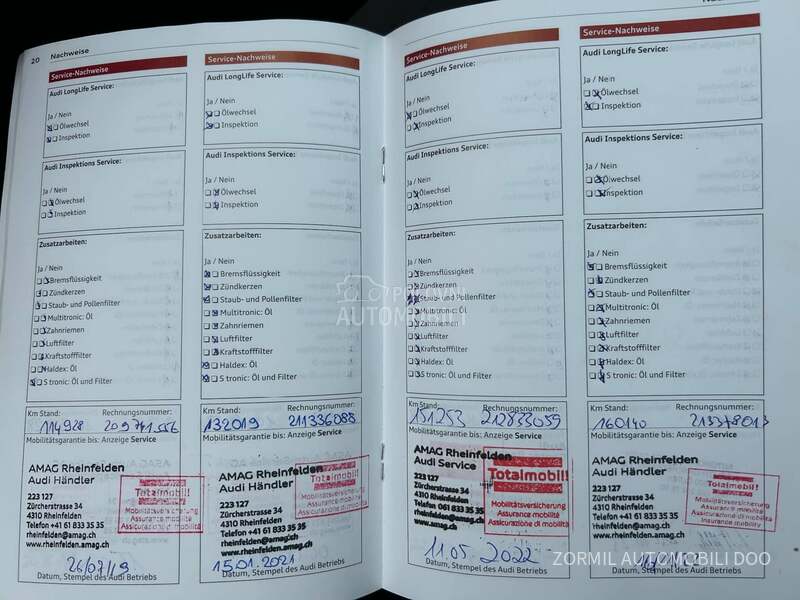 20 Nachweise
Service-Nachweise
Audi LongLife Service:
Ja / Nein
Ölwechsel
Inspektion
Audi Inspektions Service:
Ja / Nein
Ölwechsel
Inspektion
Zusatzarbeiten:
Ja / Nein
Bremsflüssigkeit
Zündkerzen
Staub- und Pollenfilter
Multitronic: Öl
Zahnriemen
Luftfilter
Kraftstofffilter
Haldex: Öl
S tronic: Öl und Filter
Km Stand: Rechnungsnummer:
114928 209741556
Mobilitätsgarantie bis: Anzeige Service
AMAG Rheinfelden
Audi Händler
223 127
Zürcherstrasse 34
4310 Rheinfelden
Telefon +41 61 833 35 35
rheinfelden@amag.ch
www.rheinfelden.amag.ch
Totalmobil!
Mobilitätsversicherung
Assurance mobilité
Assicurazione di mobilità
26/07/19
Datum, Stempel des Audi Betriebs
Service-Nachweise
Audi LongLife Service:
Ja / Nein
Ölwechsel
Inspektion
Audi Inspektions Service:
Ja / Nein
Ölwechsel
Inspektion
Zusatzarbeiten:
Ja / Nein
Bremsflüssigkeit
Zündkerzen
Staub- und Pollenfilter
Multitronic: Öl
Zahnriemen
Luftfilter
Kraftstofffilter
Haldex: Öl
S tronic: Öl und Filter
Km Stand: Rechnungsnummer:
132019 211336088
Mobilitätsgarantie bis: Anzeige Service
AMAG Rheinfelden
Audi Händler
223 127
Zürcherstrasse 34
4310 Rheinfelden
Telefon +41 61 833 35 35
rheinfelden@amag.ch
www.rheinfelden.amag.ch
Totalmobil!
Mobilitätsversicherung
Assurance mobilité
Assicurazione di mobilità
15.01.2021
Datum, Stempel des Audi Betriebs
Service-Nachweise
Audi LongLife Service:
Ja / Nein
Ölwechsel
Inspektion
Audi Inspektions Service:
Ja / Nein
Ölwechsel
Inspektion
Zusatzarbeiten:
Ja / Nein
Bremsflüssigkeit
Zündkerzen
Staub- und Pollenfilter
Multitronic: Öl
Zahnriemen
Luftfilter
Kraftstofffilter
Haldex: Öl
S tronic: Öl und Filter
Km Stand: Rechnungsnummer:
151253 212833059
Mobilitätsgarantie bis: Anzeige Service
AMAG Rheinfelden
Audi Service
223 127
Zürcherstrasse 34
4310 Rheinfelden
Telefon 061 833 35 35
rheinfelden@amag.ch
www.rheinfelden.amag.ch
Totalmobil!
Mobilitätsversicherung
Assurance mobilité
Assicurazione di mobilità
11.05.2022
Datum, Stempel des Audi Betriebs
Service-Nachweise
Audi LongLife Service:
Ja / Nein
Ölwechsel
Inspektion
Audi Inspektions Service:
Ja / Nein
Ölwechsel
Inspektion
Zusatzarbeiten:
Ja / Nein
Bremsflüssigkeit
Zündkerzen
Staub- und Pollenfilter
Multitronic: Öl
Zahnriemen
Luftfilter
Kraftstofffilter
Haldex: Öl
S tronic: Öl und Filter
Km Stand: Rechnungsnummer:
160140
Mobilitätsgarantie bis: Anzeige Service
AMAG Rheinfelden
Audi Händler
223 127
Zürcherstrasse 34
4310 Rheinfelden
Telefon +41 61 833 35 35
rheinfelden@amag.ch
www.rheinfelden.amag.ch
Totalmobil!
Mobilitätsversicherung
Assurance mobilité
Assicurazione di mobilità
Insurance mobility
Datum, Stempel des Audi Betriebs
POLOVNI
AUTOMOBILI
ZORMIL AUTOMOBILI DOO